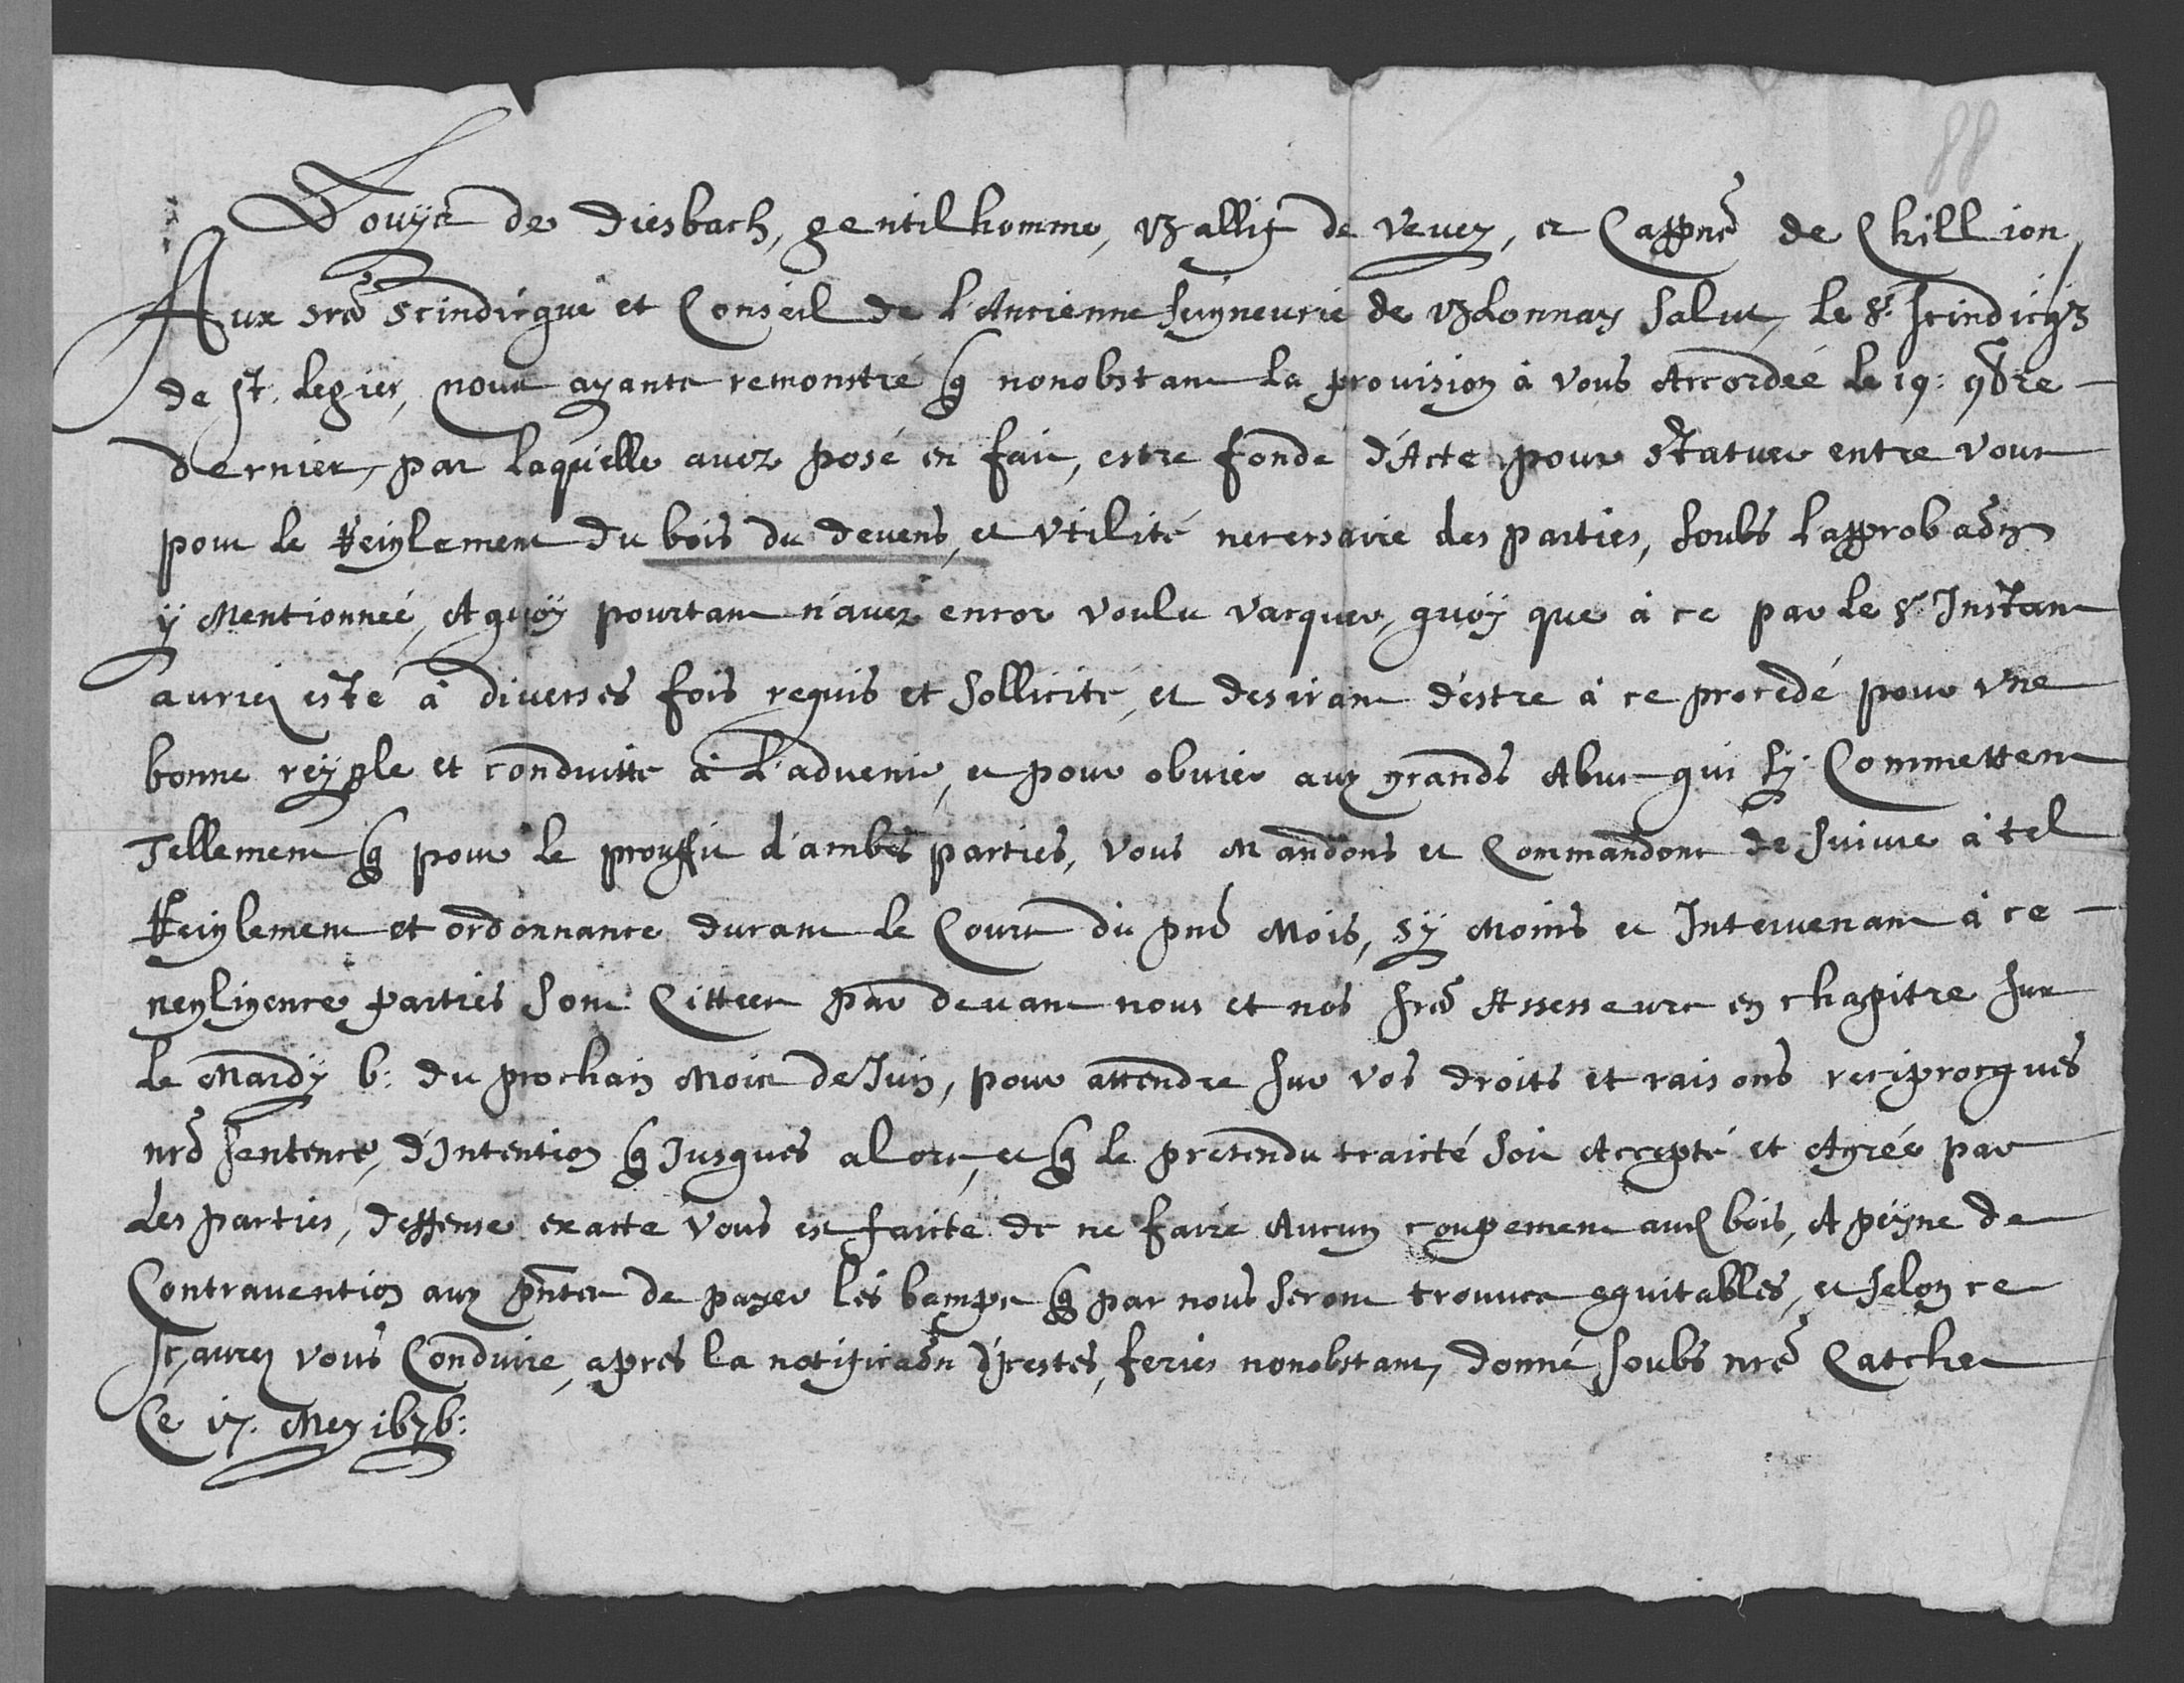 88
Louys de Diesbach, gentilhomme, Ballif de Vevey, et Cappne de Chillion,
Aux srs Scindicque et Conseil de l'Ancienne seigneurie de Blonnay Salut, le Sr. scindicq3
de St. Legier, nous ayants remonstré q nonobstant la provision à vous Accordée le 19: 9bre
dernier, par laquelle avez posé en fait, estre fondé d'Acte pour statuer entre vous
pour le Reiglement du bois du devens, et Vtilité necerssaire des parties, soubs l'approbaon
ÿ Mentionneé, A quoÿ pourtant n'avez encor voulu vacquer, quoÿ que à ce par le Sr Instant
auriez esté à diverses fois requis et sollicité, et desirant d'estre à ce procedé pour vne
bonne reÿgle et conduitte à l'advenir, et pour obvier aux grands Abus qui sÿ Commettent
Tellement q pour le prouffit d'ambes parties, vous Mandons et Commandons de suivre à tel
Reiglement et ordonnance durant le Cours du pnt Mois, sÿ Moins et Intervenant à ce
negligence parties sont Cittees par devant nous et nos srs Assesseurs en chapitre sur
le Mardÿ 6: du prochain Mois de Juin, pour attendre sur vos droits et raisons reciprocques
nre sentence, d'Intention q Jusques alors, et q le pretendu traicté soit Accepté et Agréé par
les parties, deffense exacte vous est faicte de ne faire Aucun coupement audt bois, A peÿne de
Contravention aux pntes de payer les bamps q par nous seront trouvés equitables, et selon ce
sçaurez vous Conduire, apres la notificaon d'icestes, feries nonobstant, donné soubs nre Catchet
Ce 17. Mey 1676: